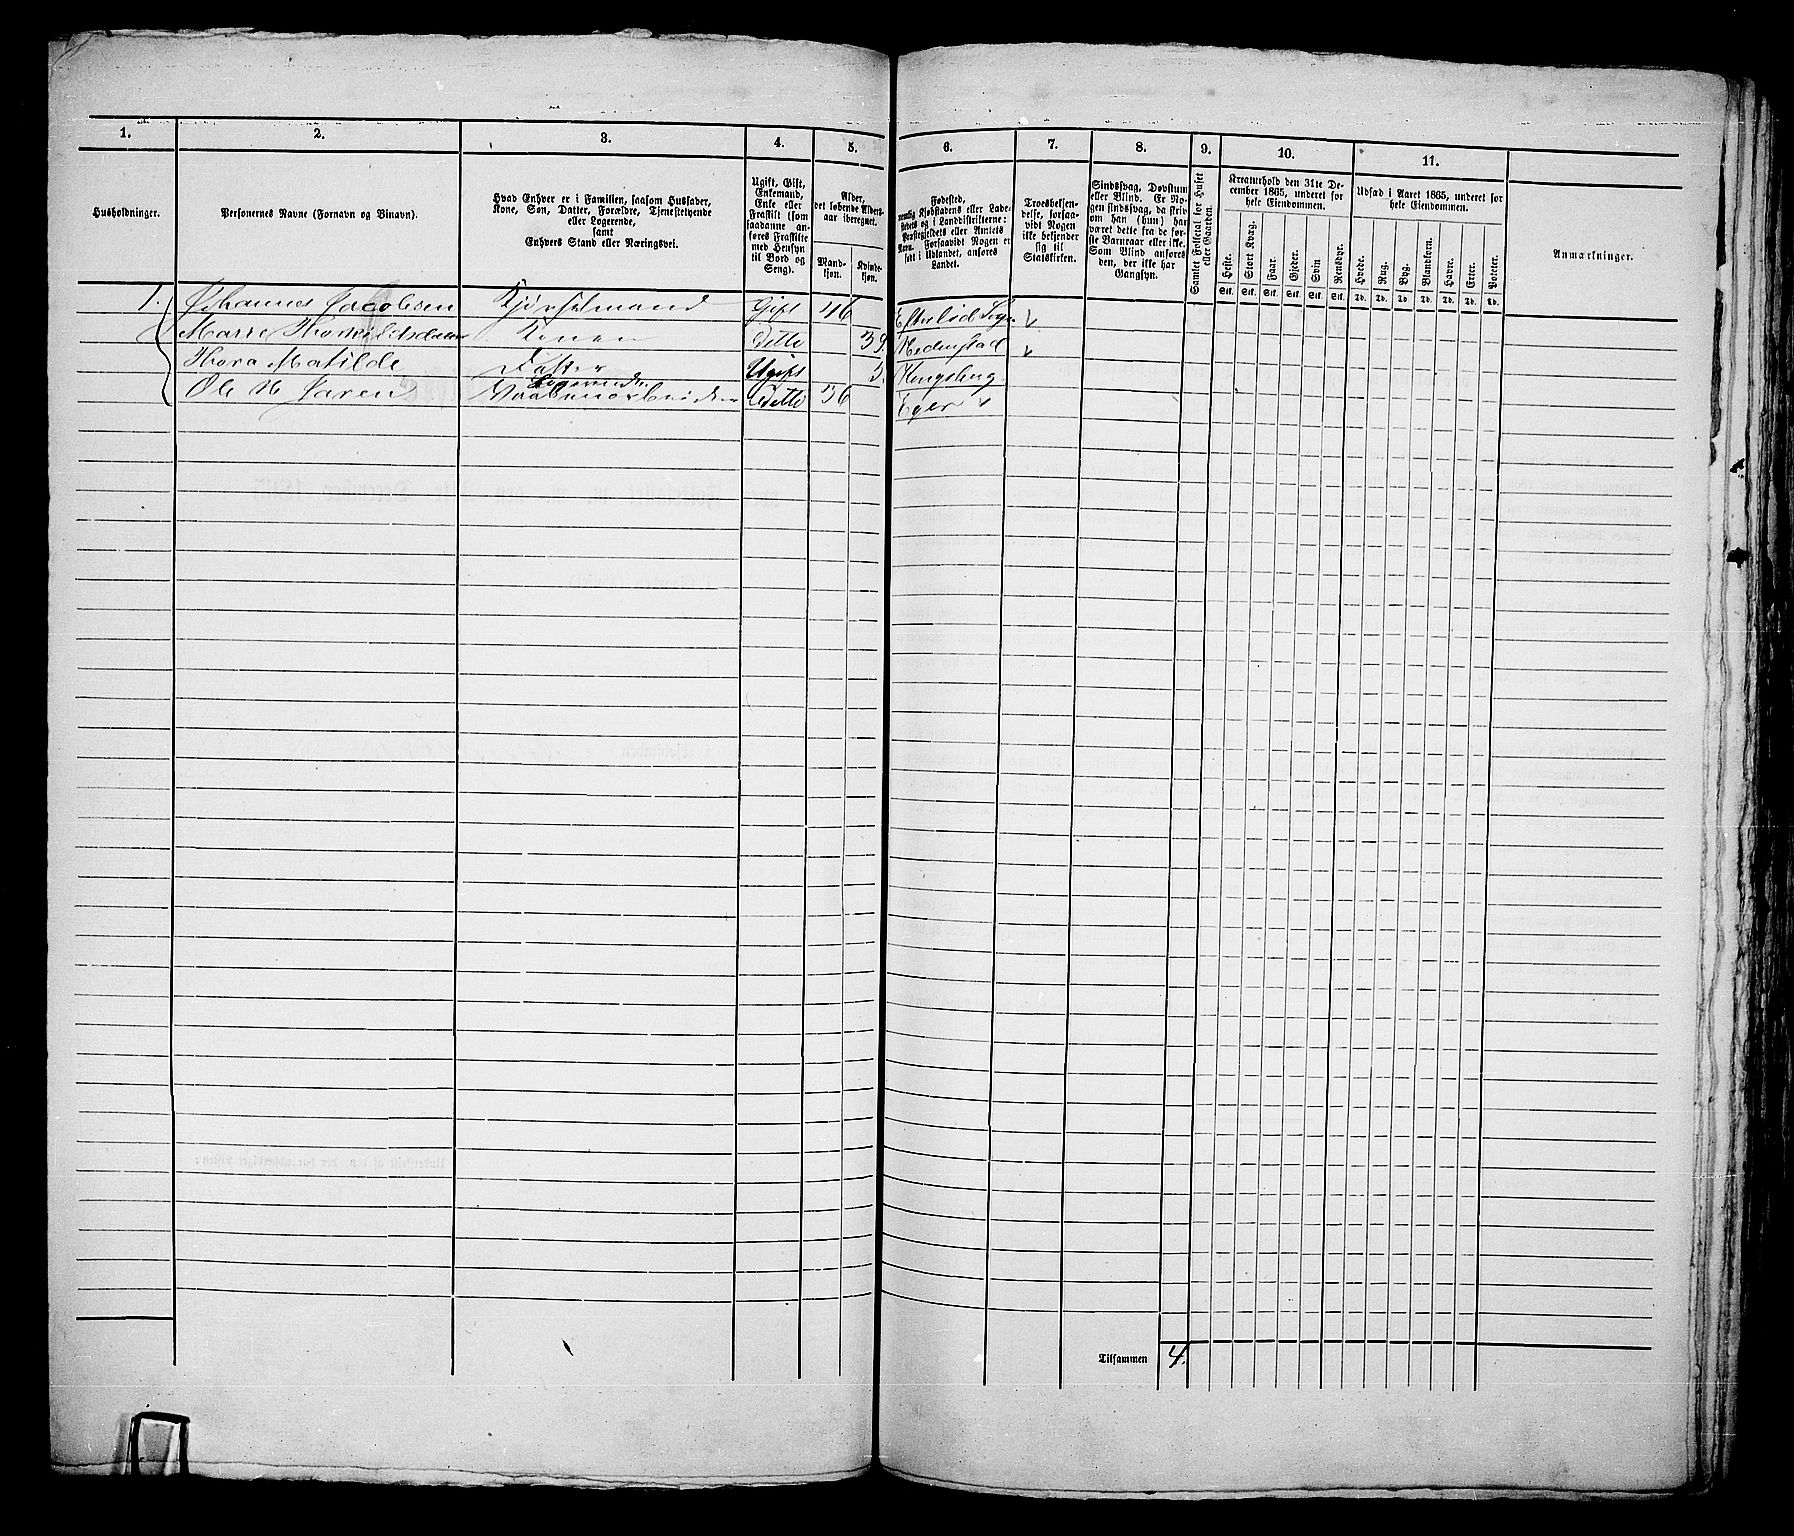 1. 2. 3. 4. 5. 6. 7. 8. 9. 10. 11.
Husholdninger.
Personernes Navne (Fornavn og Binavn).
Hvad Enhver er i Familien, saasom Husfader,
Kone, Søn, Datter, Forældre, Tjenestetyende
eller Logerende,
samt
Enhvers Stand eller Næringsvei.
Ugift, Gift,
Enkemand,
Enke eller
Fraskilt (som
saadanne an-
føres Fraskilte
med Hensyn
til Bord og
Seng).
Alder,
det løbende Alders-
aar iberegnet.
Mand-
kjøn.
Kvinde-
kjøn.
Fødested,
nemlig Kjøbstadens eller Lade-
stedets og i Landdistrikterne:
Præstegjeldets eller Amtets
Navn. Forsaavidt Nogen er
født i Udlandet, anføres
Landet.
Troesbekjen-
delse, forsaa-
vidt Nogen
ikke bekjender
sig til
Statskirken.
Sindssvag, Døvstum
eller Blind. Er No-
gen sindssvag, da skriv
om han (hun) har
været dette fra de før-
ste Barnaar eller ikke.
Som Blind anføres
den, der ikke har
Gangsyn.
Samlet Folketal i for Huset
eller Gaarden.
Kreaturhold den 31te De-
cember 1865, underet for
hele Eiendommen.
Heste. Stort Kvæg. Faar. Gjeder. Svin Rensdyr.
Stk. Stk. Stk. Stk. Stk. Stk.
Udsæd i Aaret 1865, underet for
hele Eiendommen.
Hvede. Rug. Byg. Blandkorn. Havre. Erter. Poteter.
Td. Td. Td. Td. Td. Td. Td.
Anmærkninger.
1. Johannes Jacobsen Gift 46
Marre Thorkildsdatter Konen Ditto 39. Hedenstad
Thora Matilde Datter Ugift 5. Kongsberg
Logerende
Ole H Jaren Vaabenarbeider Ditto 36 Eger
Tilsammen 4.